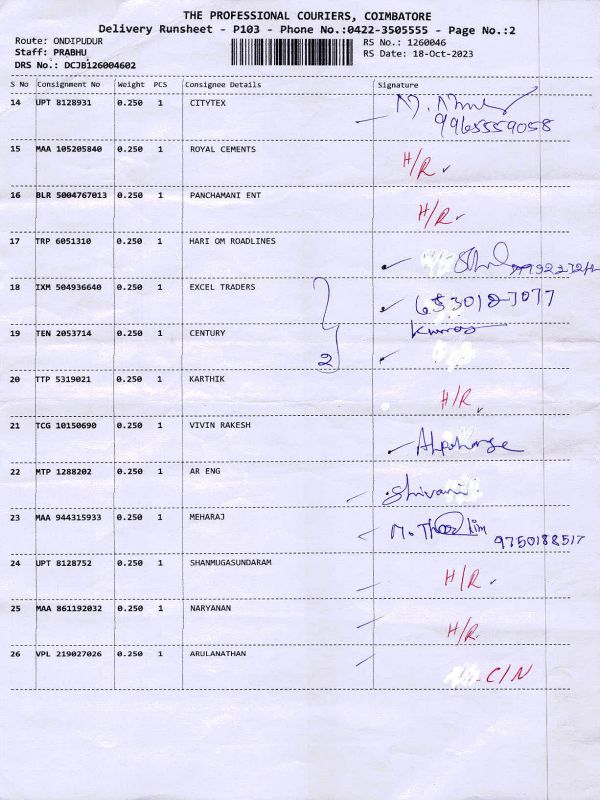 THE PROFESSIONAL COURIERS, COIMBATORE
Delivery Runsheet - P103 - Phone No.:0422-3505555 - Page No.:2
Route: ONDIPUDUR RS No.: 1260046
Staff: PRABHU RS Date: 18-Oct-2023
DRS No.: DCJB126004602
S No Consignment No Weight PCS Consignee Details Signature
14 UPT 8128931 0.250 1 CITYTEX
9965559058
15 MAA 105205840 0.250 1 ROYAL CEMENTS
H/R
16 BLR 5004767013 0.250 1 PANCHAMANI ENT
H/R
17 TRP 6051310 0.250 1 HARI OM ROADLINES
18 IXM 504936640 0.250 1 EXCEL TRADERS
19 TEN 2053714 0.250 1 CENTURY
2
20 TTP 5319021 0.250 1 KARTHIK
H/R
21 TCG 10150690 0.250 1 VIVIN RAKESH
22 MTP 1288202 0.250 1 AR ENG
Shivani
23 MAA 944315933 0.250 1 MEHARAJ
9750188517
24 UPT 8128752 0.250 1 SHANMUGASUNDARAM
H/R
25 MAA 861192032 0.250 1 NARYANAN
H/R
26 VPL 219027026 0.250 1 ARULANATHAN
C/N